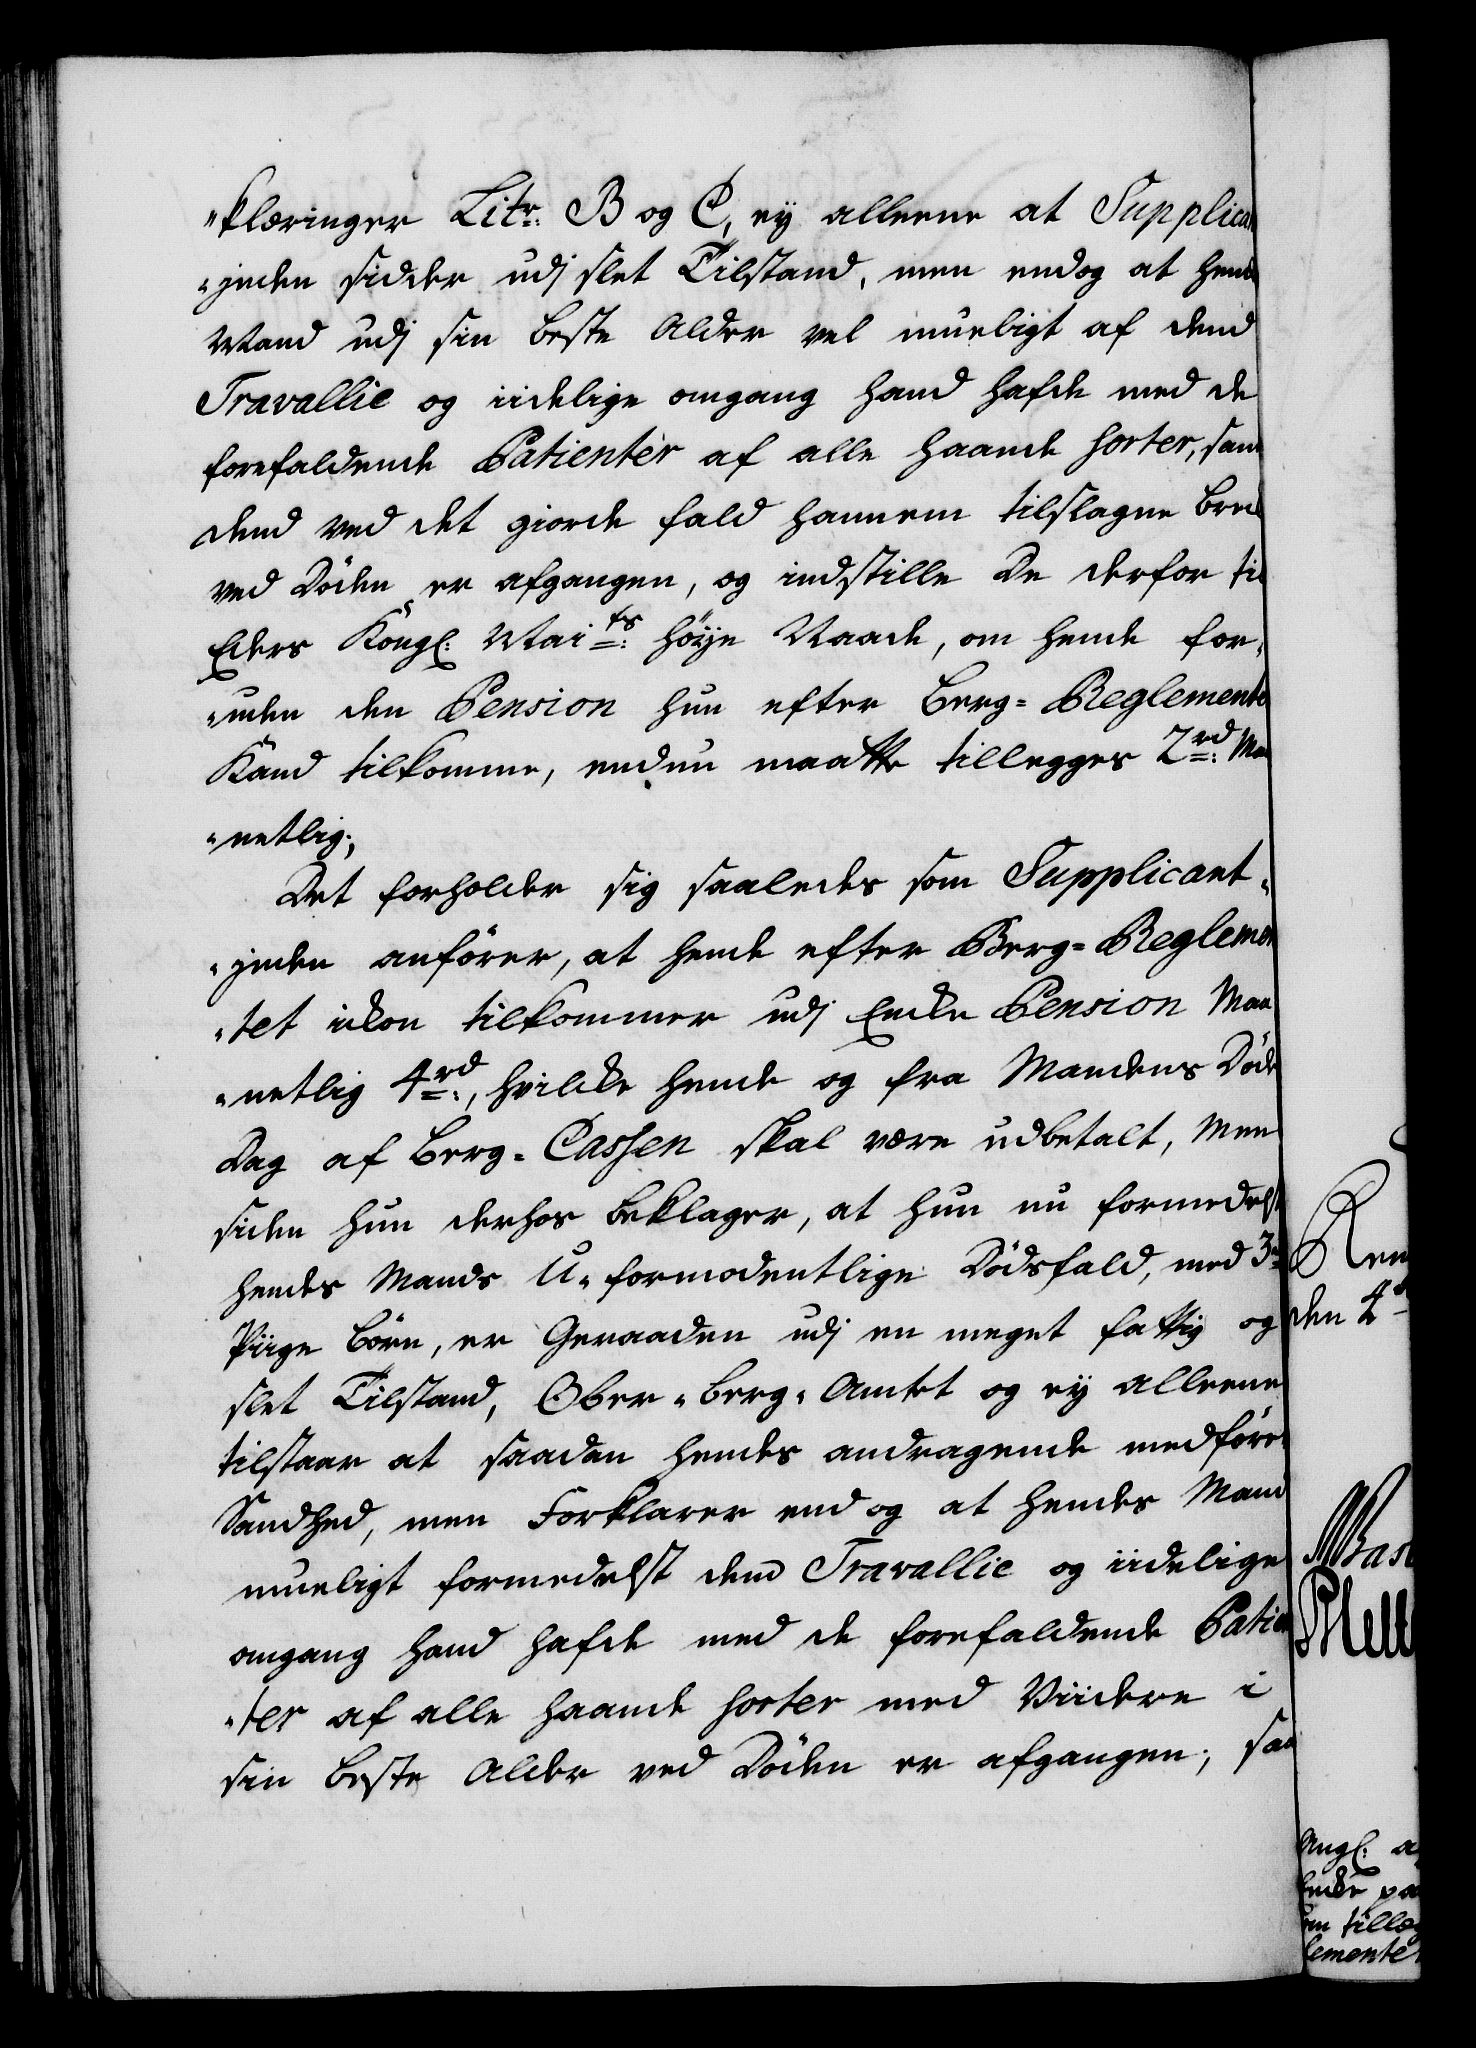 "klæringer Litr: B og C, ey alleene at Supplica
"inden sidder udj slet Tilstand, men endog at hend
Mand udj sin beste Alder vel mueligt af dend
Travallie og iidelige omgang hand hafde med de
forefaldende Patienter af alle haande sorter, sam
dend ved det giorde fald hannem tilslagne bræk
ved Döden er afgangen, og indstille De derfor til
Eders Kongl: Mai ts: höye Naade, om hende for„
„uden den Pension hun efter Berg= Reglemente
Kand tilkomme, endnu maatte tillegges 2 rd: Maa
„netlig;
Det forholder sig saaledes som Supplicant„
„inden anförer, at hende efter Berg= Reglemen
„tet ickon tilkommer udj Encke Pension Maa
„netlig 4 rd:, hvilcke hende og fra Mandens Döds
Dag af Berg= Cassen skal være udbetalt, Men
siden hun derhos beklager, at hun nu formedelst
hendes Mands U„formodentlige Dödsfald, med 3
Piige börn, er Geraaden udj en meget fattig og
slet Tilstand, Ober„Berg„Amtet og ey alleene
tilstaar at saadan hendes andragende medföre
Sandhed, men Forklarer end og at hendes Mand
mueligt formedelst dend Travallie og iidelige
omgang hand hafde med de forefaldende Patien
„ter af alle haande sorter med Viidere i
sin beste Alder ved Döden er afgangen; saa
Ren
den 4
Kongl: a
Encke pa
tillæ
lemente